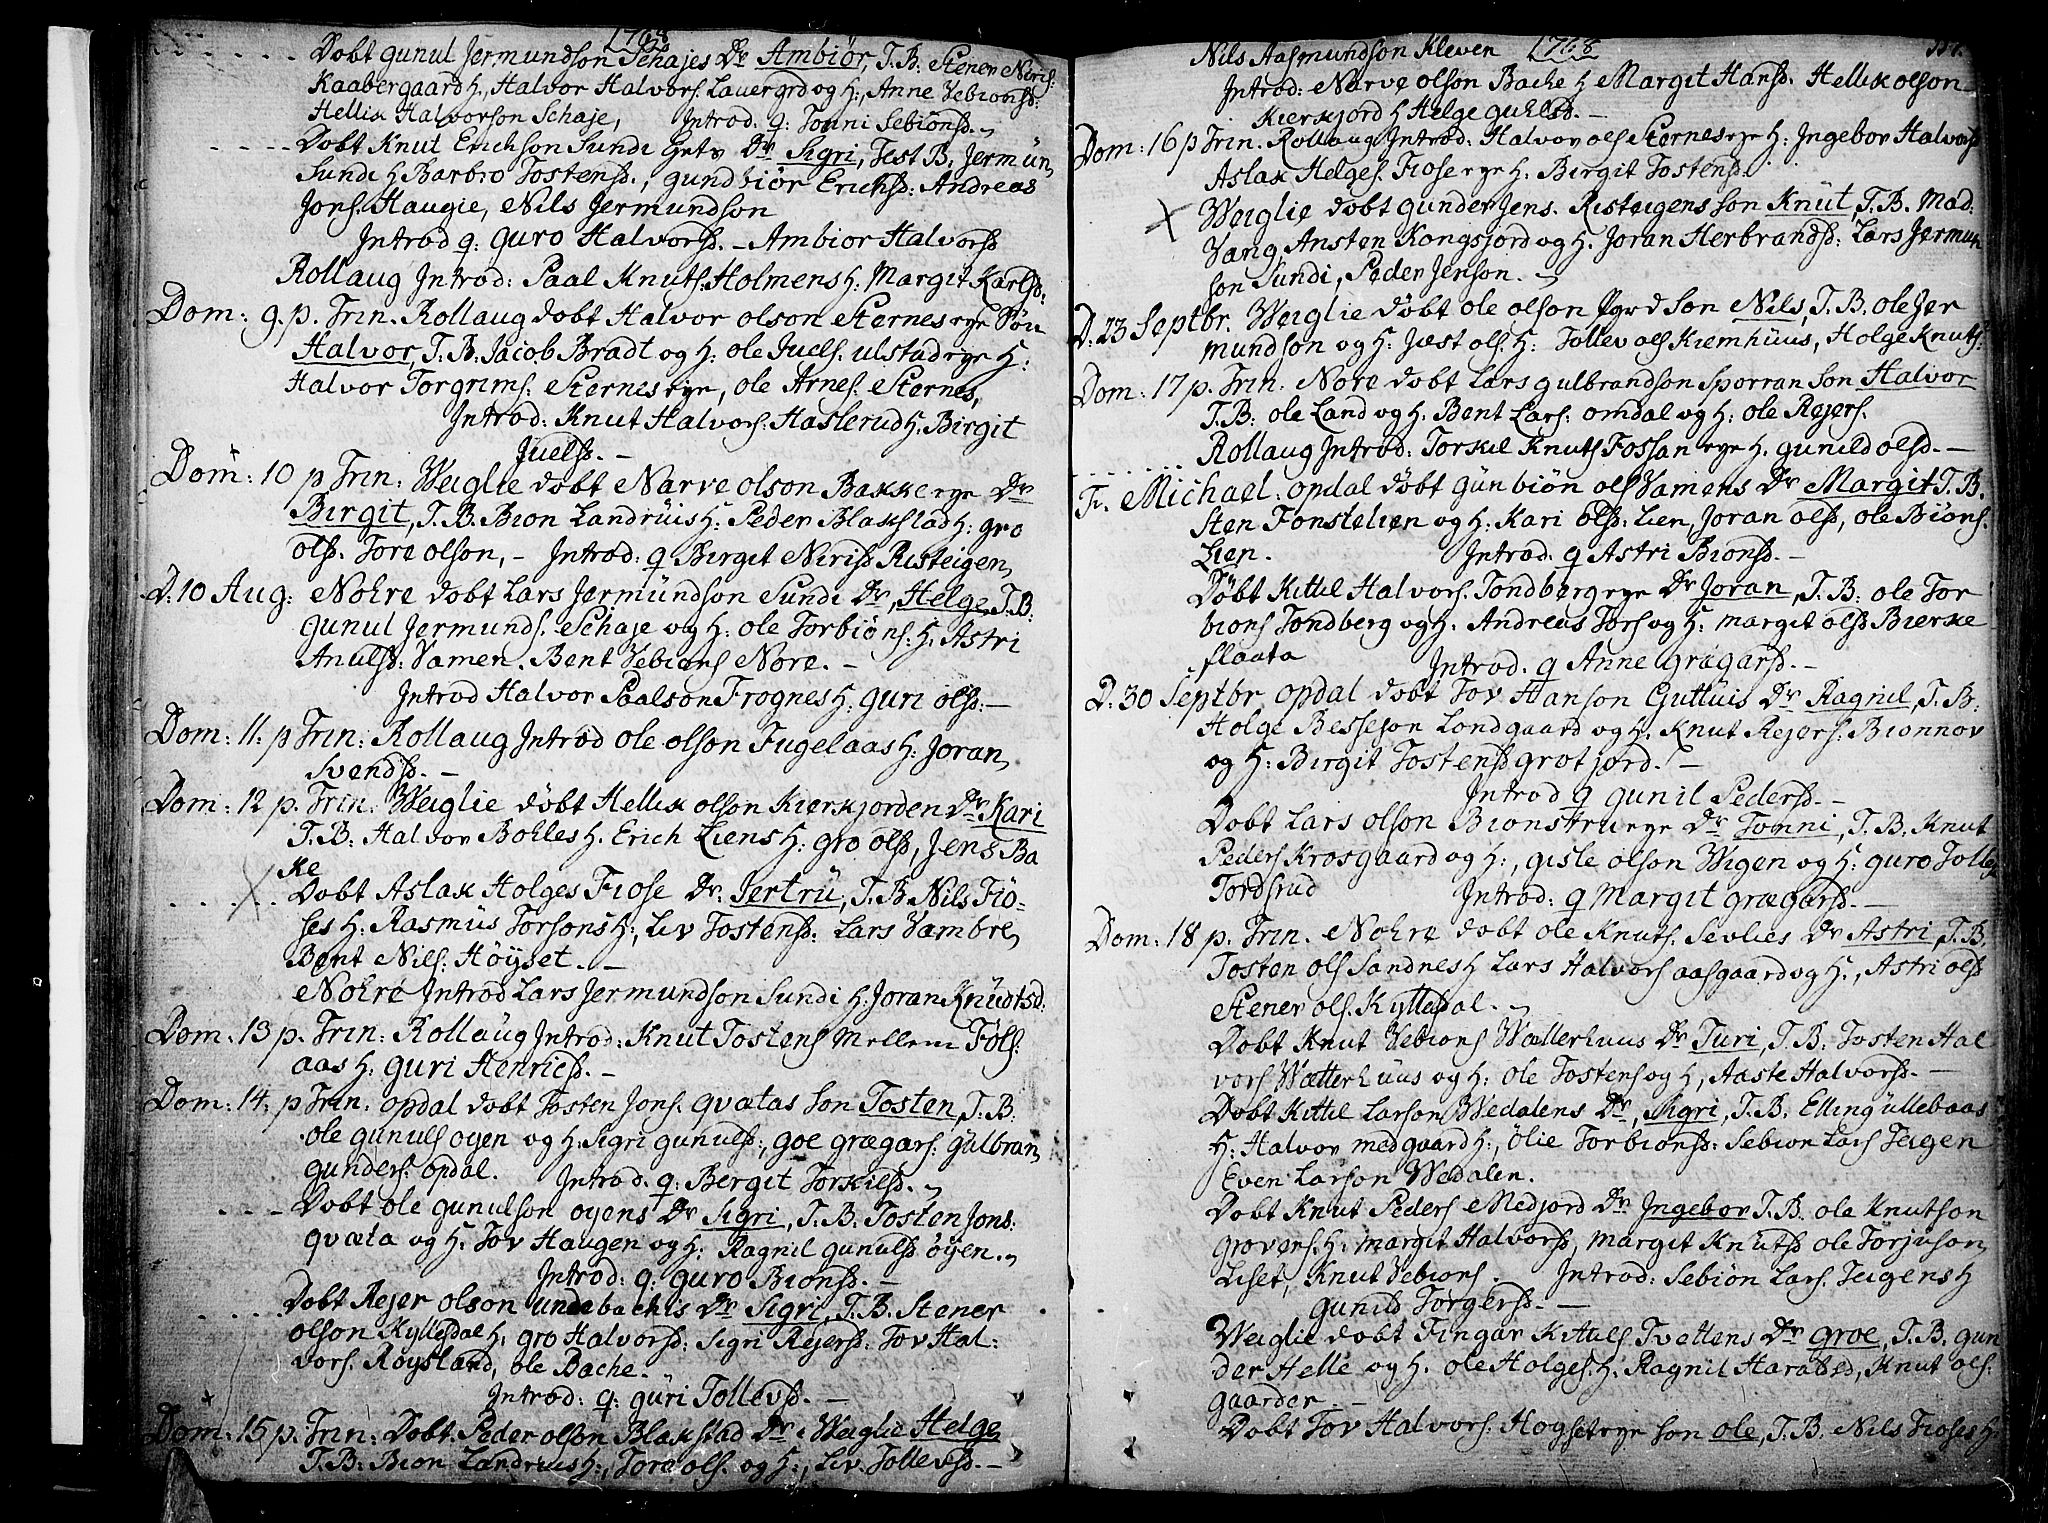 1768
Dobt Gunul Jermundson Schajes Dr Ambiør, T.B: Stener Niris:
Kaabergaard H:, Halvor Halvors. Lauergrd og H:, Anne Vebionsd:
Hellik Halvorson Schaje, Introd: q: Tonni Sebionsd.
Dobt Knut Erichson Sundi Dr Sigri, Test B. Jermun
Sundi H Barbro Tostensd., Gundbiør Erichsd: Andreas
Jons. Haugie, Nils Jermundson
Introd q: Guro Halvorsd. - Ambior Halvorsd
Rollaug Introd: Paal Knuts: Holmens H: Margit Karlsd:
Dom: 9. p. Trin. Rollaug dobt Halvor olson Sternes eye Søn
Halvor, T.B: Jacob Bradt og H: ole Juels. ulstad eye H:
Halvor Torgrims. Sternes eye, ole Arnes. Sternes,
Introd: Knut Halvors. Haslerud H. Birgit
Juelsd. -
Dom: 10 p Trin: Weiglie dobt Narve olson Bakke eye Dr
Birgit, T.B. Bion Landruis H: Peder Blakstad H: Gro
olsd. Tore olson, - Introd: q Birgit Nirisd Risteigen,
D: 10 Aug: Nohre dobt Lars Jermundson Sundi Dr, Helge, T.B:
Gunul Jermunds. Schaje og H: ole Torbiøns: H: Astri
Anulsd: Vamen. Bent Vebions Nore. -
Introd Halvor Paalson Frognes H: Guri olsd: -
Dom: 11: p Trin: Rollaug Introd ole olson Fugelaas H: Joran,
Svendsd. -
Dom: 12 p. Trin: Weiglie døbt Hellik olson Kierkjorden Dr Kari
T.B: Halvor Bohles H. Erich Liens H: Gro olsd, Jens Ba
ke
Dobt Aslak Holges Fiose Dr. Jertru, T.B. Nils Fio-
ses H: Rasmus Torsons H:, Liv Tostensd: Lars Vambre,
Bent Nils: Høyset. -
Nohre Introd Lars Jermundson Sundi H: Joran Knudtsd.
Dom: 13 p. Trin: Rollaug Introd: Knut Tostens Mellem Føls:
aas H: Guri Henricsd. -
Dom: 14. p Trin. opdal dobt Tosten Jons. qvætas son Tosten, T.B.
ole Gunuls oyen og H: Sigri Gunulsd:, Goe Grægars: Gulbran,
Gunders: opdal. Introd. q: Bergit Torkilsd.
Dobt ole Gunulson oyens Dr Sigri, T.B. Tosten Jons:
qvæta og H: Tov Haugen og H: Ragnil Gunulsd øyen.
Introd: q: Guro Bionsd. -
Dobt Rejer olson undebachis Dr Sigri, T.B. Stener
olson Kyllesdal H: Gro Halvorsd: Sigri Rejersd: Tov Hal:
vors. Røysland, ole Bache.
Introd: q: Guri Tollevsd. -
Dom: 15 p. Trin: Dobt. Peder olson Blakstad Dr. i Weiglie Helge
T.B: Bion Landruis H:, Tore ols. og H:, Liv. Tollevsd. -
Nils Aasmundson Kleven 1768
Introd: Narve olson Bache H Margit Hansd. Hellik olson
Kierkjord H Helge Gulsd. -
Dom: 16 p Trin. Rollaug Introd: Halvor ols Sternes eye H: Ingebor Halvorsd
Aslak Helges. Fiose eye H. Birgit Tostensd.
Weiglie dobt Gunder Jens. Risteigens son Knut, T.B. Mad:
Vang, Ansten Kongsjord og H. Joran Herbrandsd: Lars Jermun
son Sundi, Peder Jenson.
D. 23 Septbr. Weiglie dobt ole olson son Nils, T.B. ole Jer
mundson og H: Jæst ols. H: Tollev ols Kiemhuus, Holge Knuts.
Dom: 17 p. Trin. Nore dobt Lars Gulbrandson Sporran Son Halvor
T.B: ole Land og H. Bent Lars: omdal og H: ole Rejers.
Rollaug Introd: Torkil Knuts Fossan eye H. Gunild olsd. -
Fr. Michael: opdal døbt Gunbiøn ols Vamens Dr Margit T.B.
Sten Fonstelien og H: Kari olsd: Lien, Joran olsd, ole Bions.
Lien. Introd: q Astri Bionsd. -
Døbt Kittil Halvors. Tondberg eye Dr Joran, T.B: ole Tor
bions Tondberg og H. Andreas Tors og H: Margit olsd Bierke
flaata Introd. q Anne Grægarsd. -
D. 30 Septbr opdal dobt Tov Hanson Guttuis Dr Ragnil, T.B:
Holge Besseson Londgaard og H. Knut Rejers: Bionnov
og H: Birgit Tostensd Grotjord. -
Introd q Gunil Pedersd. -
Dobt Lars olson Bionstru eye Dr Tonni, T.B. Knut
Peders Krosgaard og H:, Gisle olson Wigen og H: Guro Tollef
Tordsrud Introd: q Margit Grægarsd. -
Dom: 18 p. Trin. Nohre dobt ole Knuts. Sevlies Dr Astri, T.B.
Tosten ols Sandnes H Lars Halvors aasgaard og H., Astri olsd
Stener ols. Kyllesdal. -
Dobt Knut Vebions Wætterhuus Dr Turi, T.B: Tosten Hal
vors Wætterhuus og H: ole Tostens og H, Aaste Halvorsd. -
Dobt Kittil Larson Wedalens Dr, Sigri, T.B. Elling Ullebaas
H: Halvor Madgaard H:, Ølie Torbionsd: Sebion Lars Teigen
Even Larson Wedalen.
Dobt Knut Peders Medjord Dr Ingebor T.B. ole Knutson
Grovens H: Margit Halvorsd, Margit Knutsd ole Torjuson,
Liset, Knut Vebions. Introd: Sebion Lars. Teigens H
Gunild Torgersd. -
Weiglie dobt Fingar Kittils Tvettens Dr Groe, T.B: Gun
der Helle og H. ole Holges: H: Ragnil Haralsd, Knut ols.
Gaarder. -
Dobt Tov Halvors. Høgset eye son ole, T.B. Nils Fioses H: